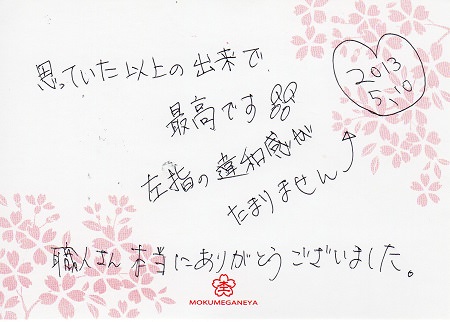 思っていた以上の出来で
最高です
左指の違和感が
たまりません
2013
5.10
職人さん本当にありがとうございました。
MOKUMEGANEYA